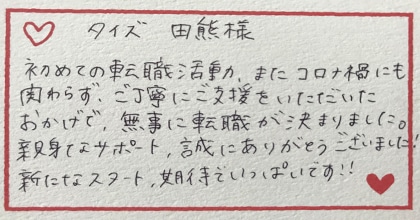 タイズ 田熊様
初めての転職活動、またコロナ禍にも
関わらず、ご丁寧にご支援をいただいた
おかげで、無事に転職が決まりました。
親身なサポート、誠にありがとうございました!
新たなスタート、期待でいっぱいです!!